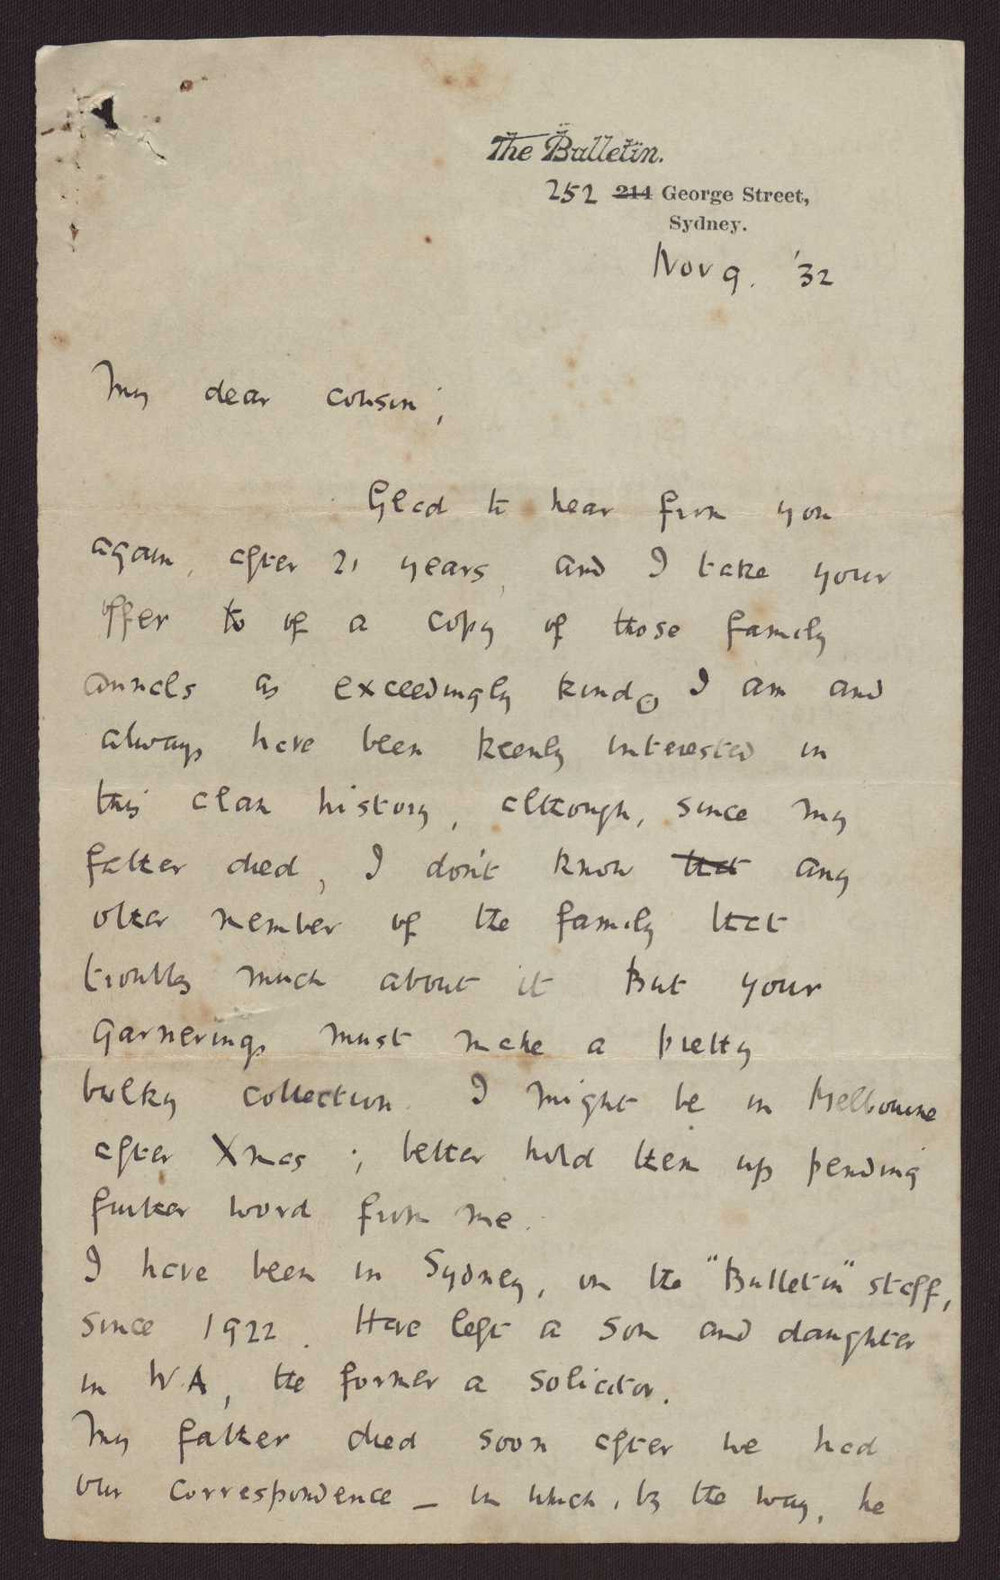 The Bulletin.
252 214 George Street,
Sydney.
Nov 9. '32
My dear cousin;
Glad to hear from you
again, after 21 years, and I take your
offer to of a copy of those family
annals as exceedingly kind. I am and
always have been keenly interested in
this clan history, although, since my
father died, I don't know that any
other member of the family that
troubles much about it But your
garnerings must make a pretty
bulky collection. I might be in Melbourne
after Xmas; better hold them up pending
further word from me.
I have been in Sydney, on the "Bulletin" staff,
since 1922. Have left a son and daughter
in W A, the former a solicitor.
My father died soon after we had
our correspondence – in which, by the way, he